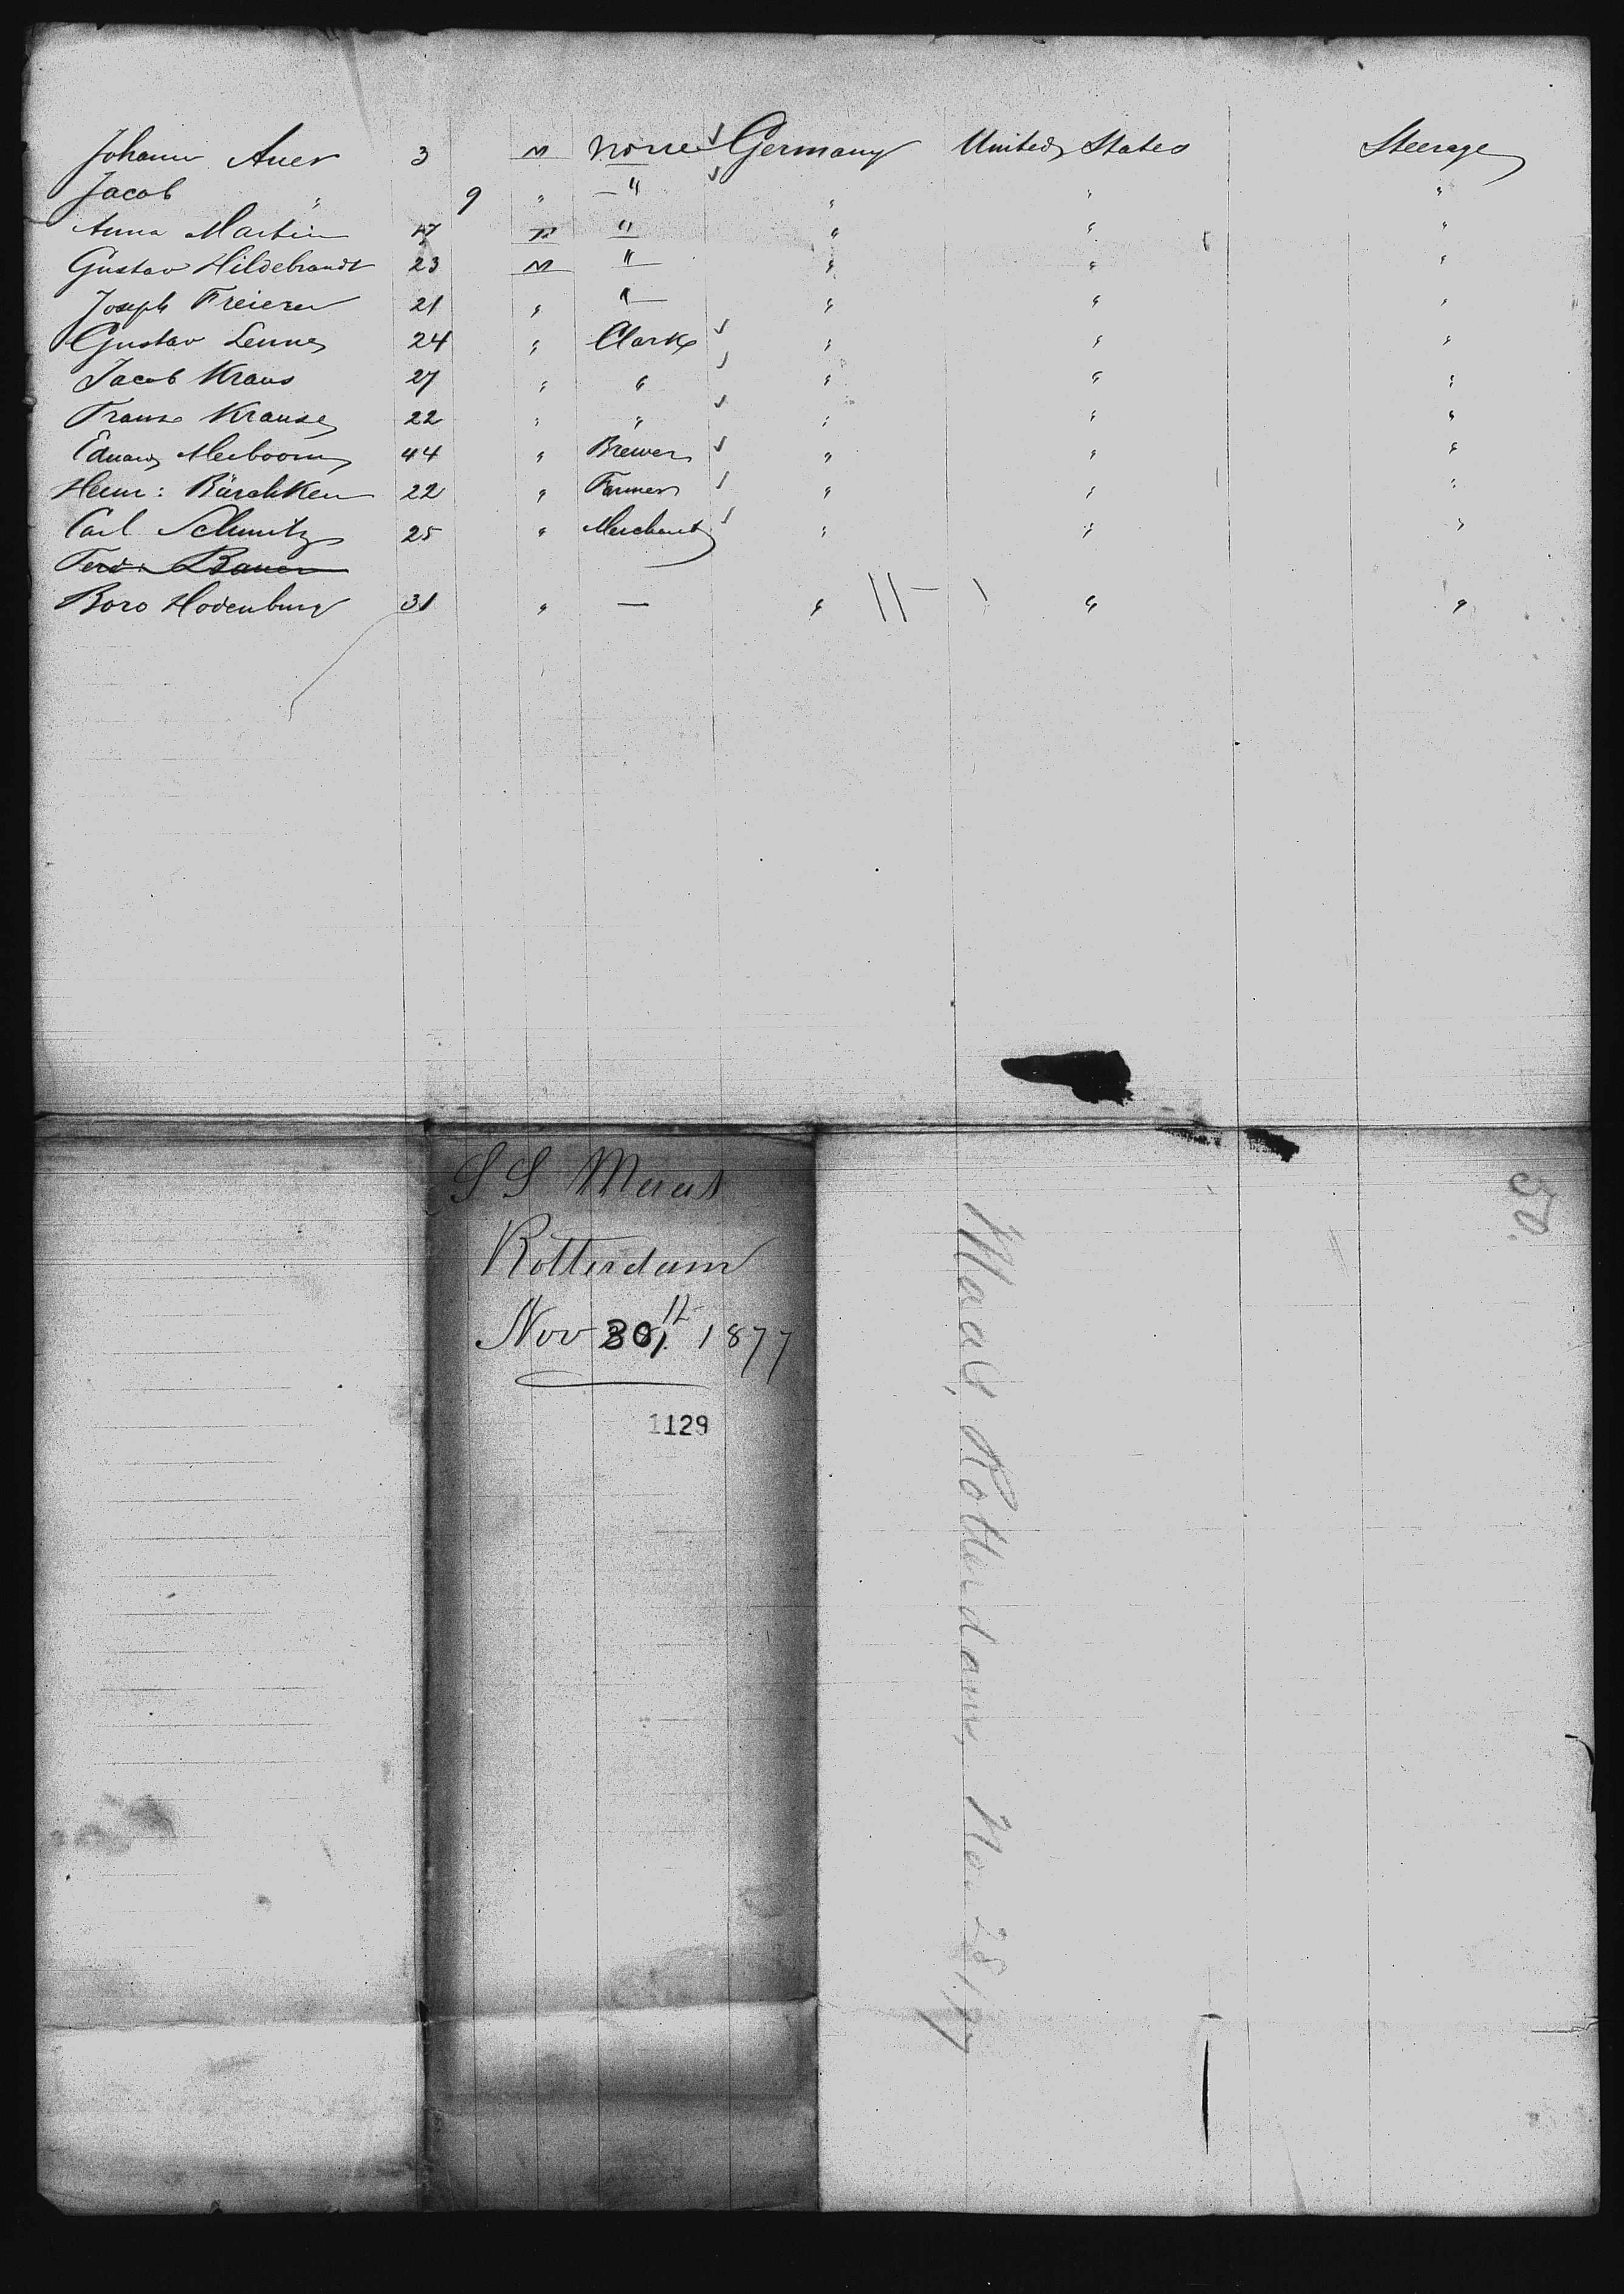 Johann Auer 3 M None Germany United States Steerage
Jacob " 9 " — " " " "
Anna Martin 17 " " " "
Gustav Hildebrandt 23 M " " " "
Joseph Freierer 21 " " " " "
Gustav Lennes 24 " Clark " " "
Jacob Kraus 27 " " " " "
Franz Krause 22 " " " " "
Eduard 44 " Brewer " " "
Heinr: 22 " Farmer " " "
Carl Schmitz 25 " Merchant " " "
Ferd: Bauer
Boro Hodenburg 31 " — " " "
SS Maas
Rotterdam
Nov 30th 1877
1129
Maas, Rotterdam, Nov 28/77
50.